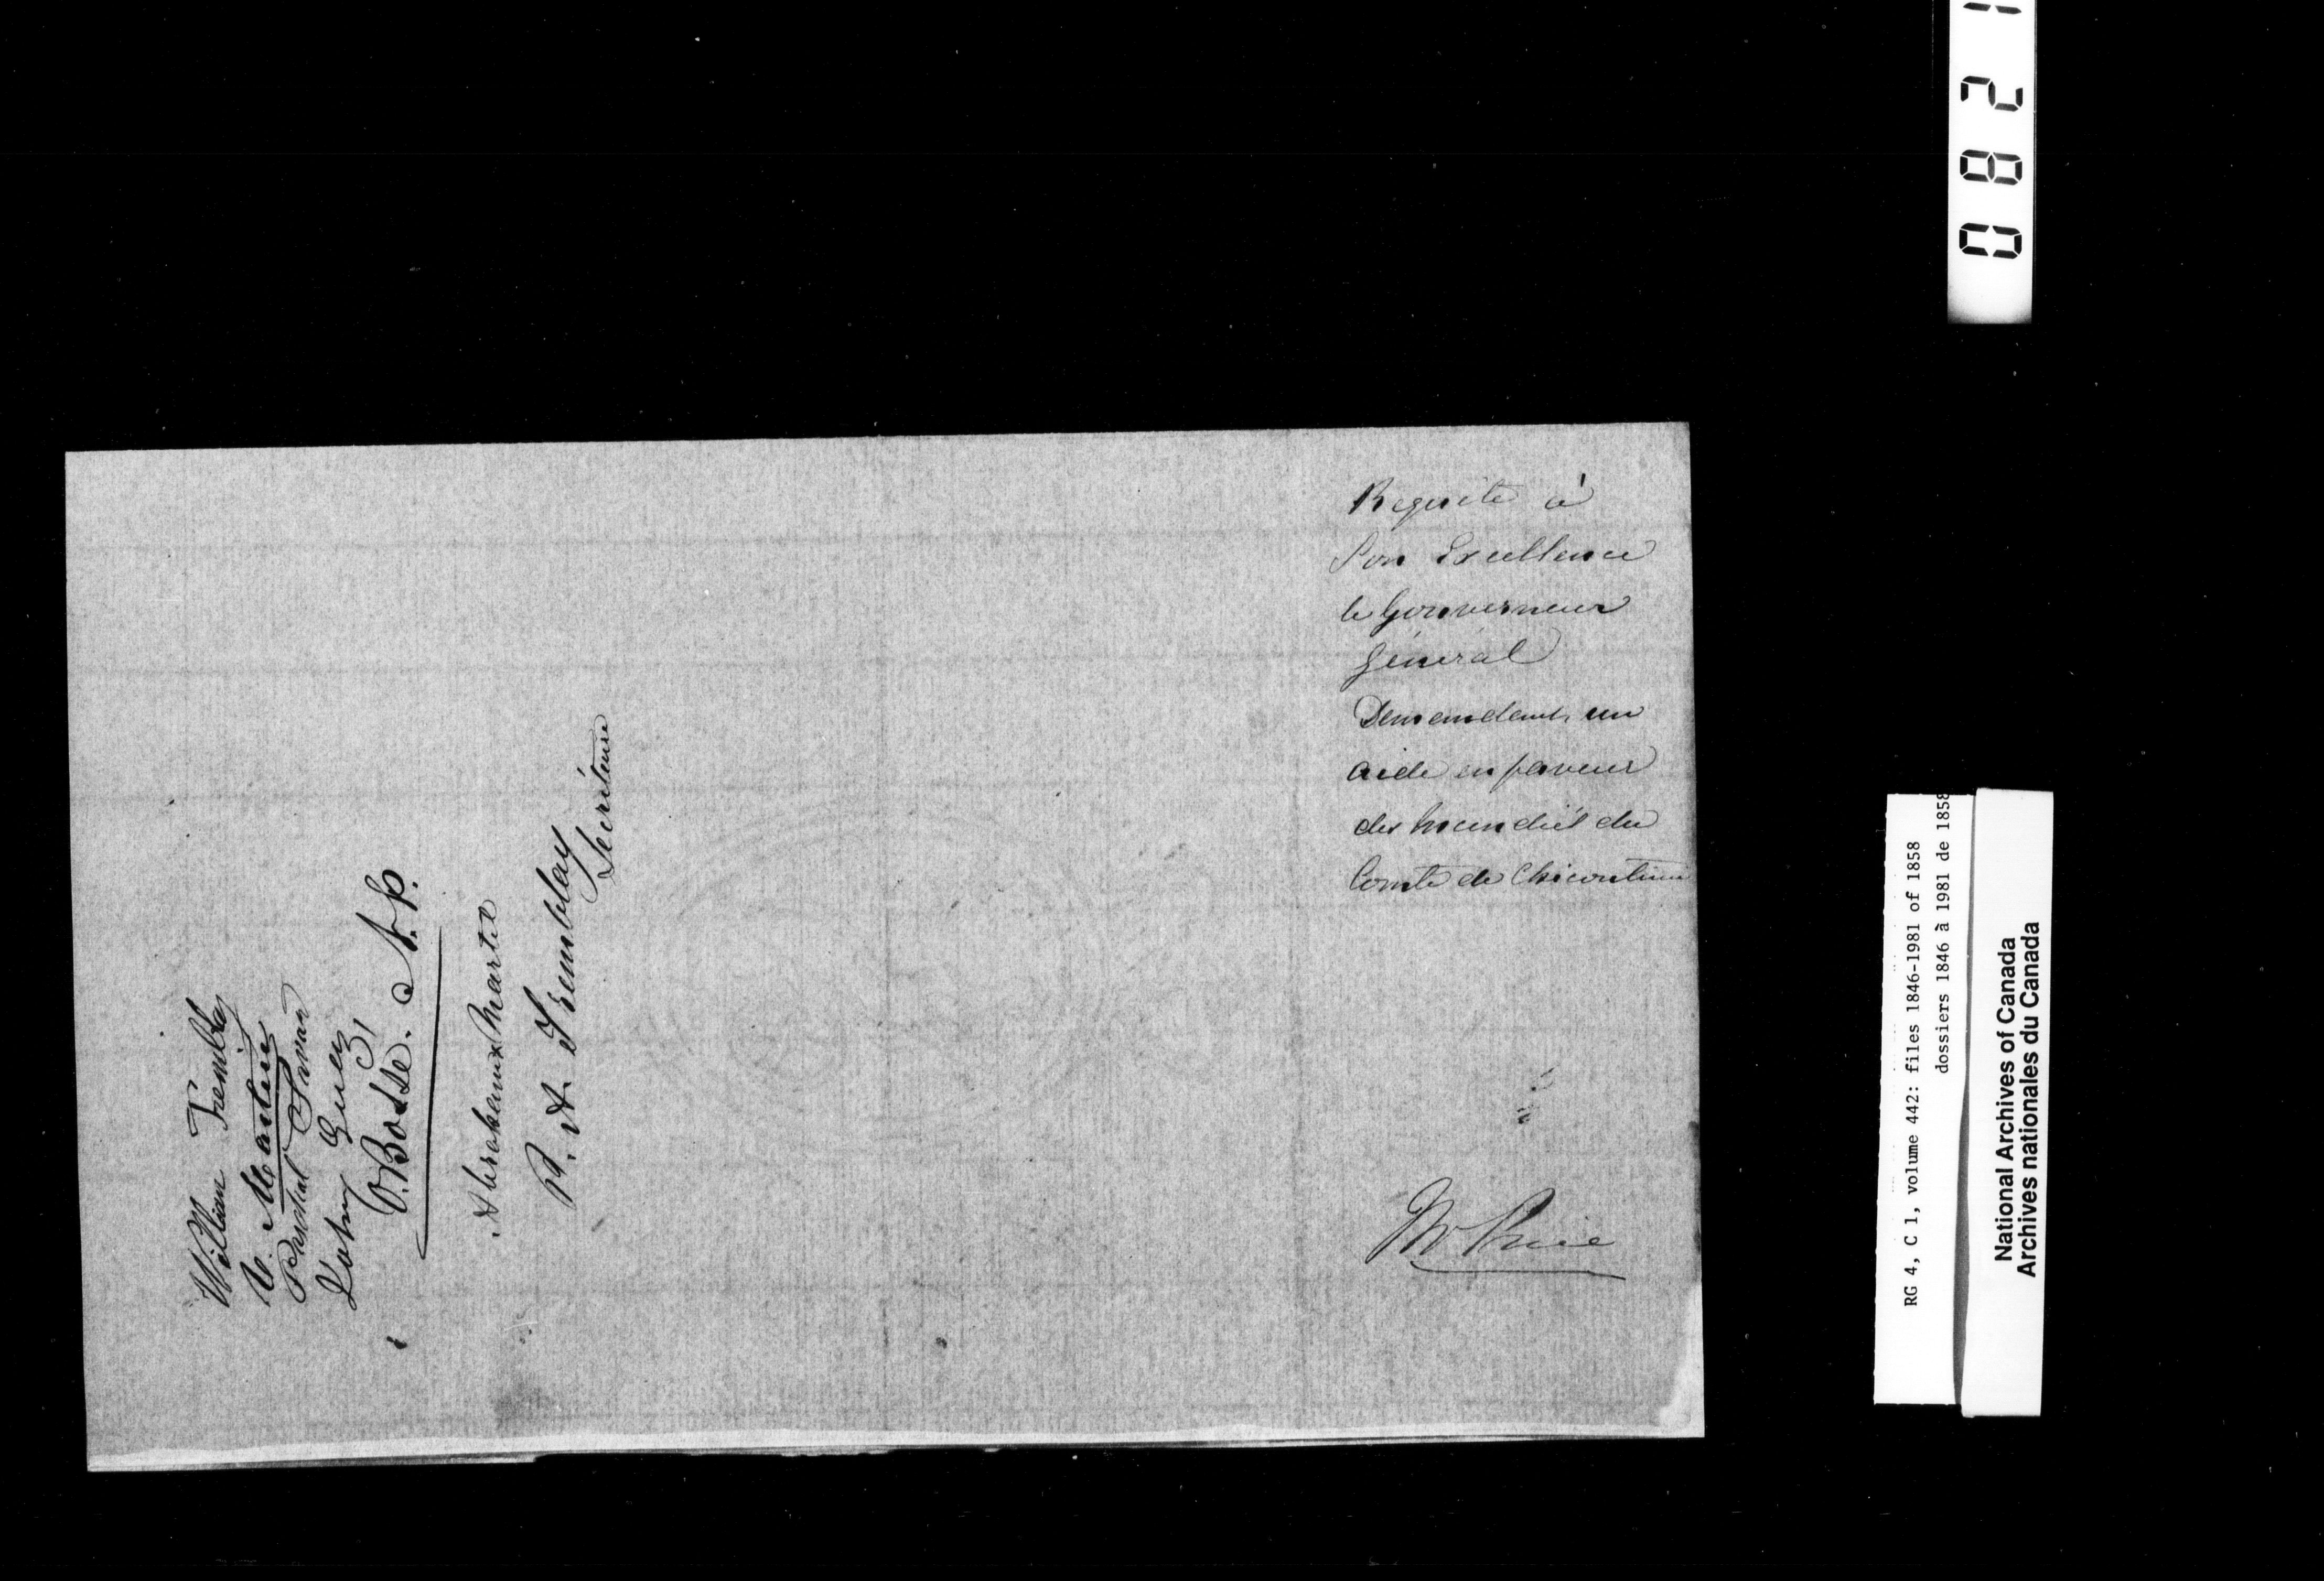 Requête à
Son Excellence
le Gouverneur
Général
Demendant un
aide en faveur
des Incendiés du
Comté de Chicoutimi
Mr Price
William Tremblay
V. Martin
Paschal Savard
John Guay
O. Bossé. N. P.
Abraham x Martel
P. A. Tremblay
Secrétaire
0821
RG 4, C 1, volume 442: files 1846-1981 of 1858
dossiers 1846 à 1981 de 1858
National Archives of Canada
Archives nationales du Canada